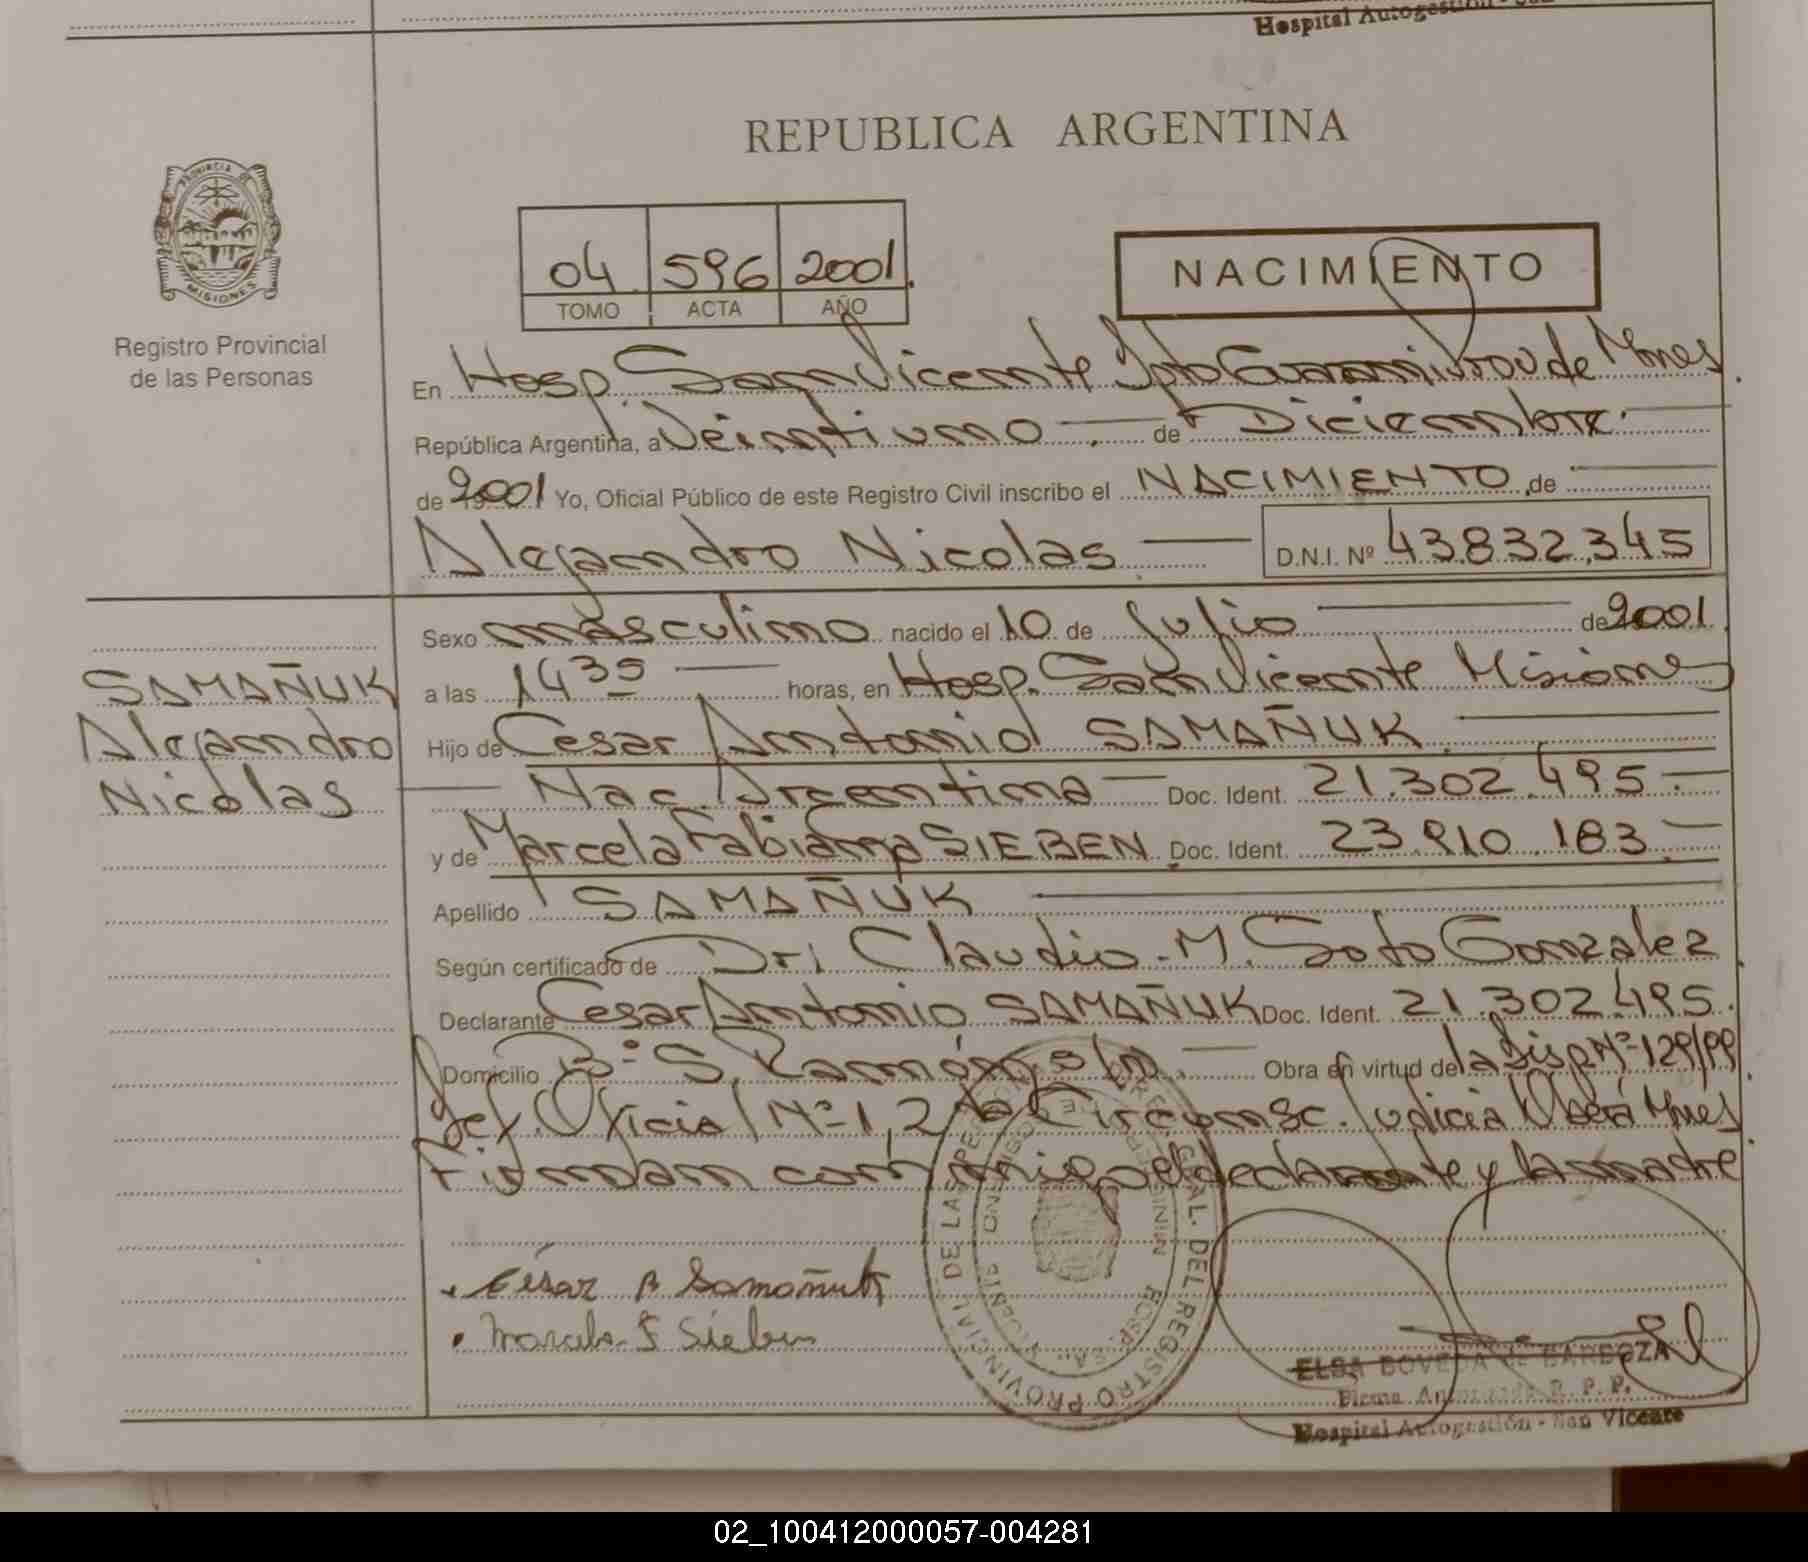 Hospital Autogestión - San
REPUBLICA ARGENTINA
PROVINCIA DE
MISIONES
Registro Provincial
de las Personas
04 596 2001.
TOMO ACTA AÑO
NACIMIENTO
En Hosp. San Vicente Dpto Guarani Prov de Mnes.
República Argentina, a Veintiuno — de Diciembre.
de 2001 Yo, Oficial Público de este Registro Civil inscribo el NACIMIENTO de
Alejandro Nicolas — D.N.I. Nº 43.832.345
Sexo masculino nacido el 10 de Julio — de 2001.
a las 14 35 — horas, en Hosp. San Vicente Misiones
SAMAÑUK
Alejandro
Nicolas
Hijo de Cesar Antonio SAMAÑUK.
— Nac. Argentina — Doc. Ident. 21.302.495.-
y de Marcela Fabiana SIEBEN. Doc. Ident. 23.910.183.-
Apellido SAMAÑUK
Según certificado de Dr: Claudio M. Soto Gonzalez.
Declarante Cesar Antonio SAMAÑUK Doc. Ident. 21.302.495.
Domicilio Bº S. Ramón s/n. — Obra en virtud de la Disp. Nº 129/99.
Def. Oficial Nº 1, 2da Circunsc. Judicial Oberá Mnes.
Firman conmigo el declarante y la madre.
César A Samañuk
Marcela F Sieben
REGISTRO PROVINCIAL DE LAS PE
ELSA BOVEDA de BARBOZA
Firma Autorizada R. P. P.
Hospital Autogestión - San Vicente
02_100412000057-004281